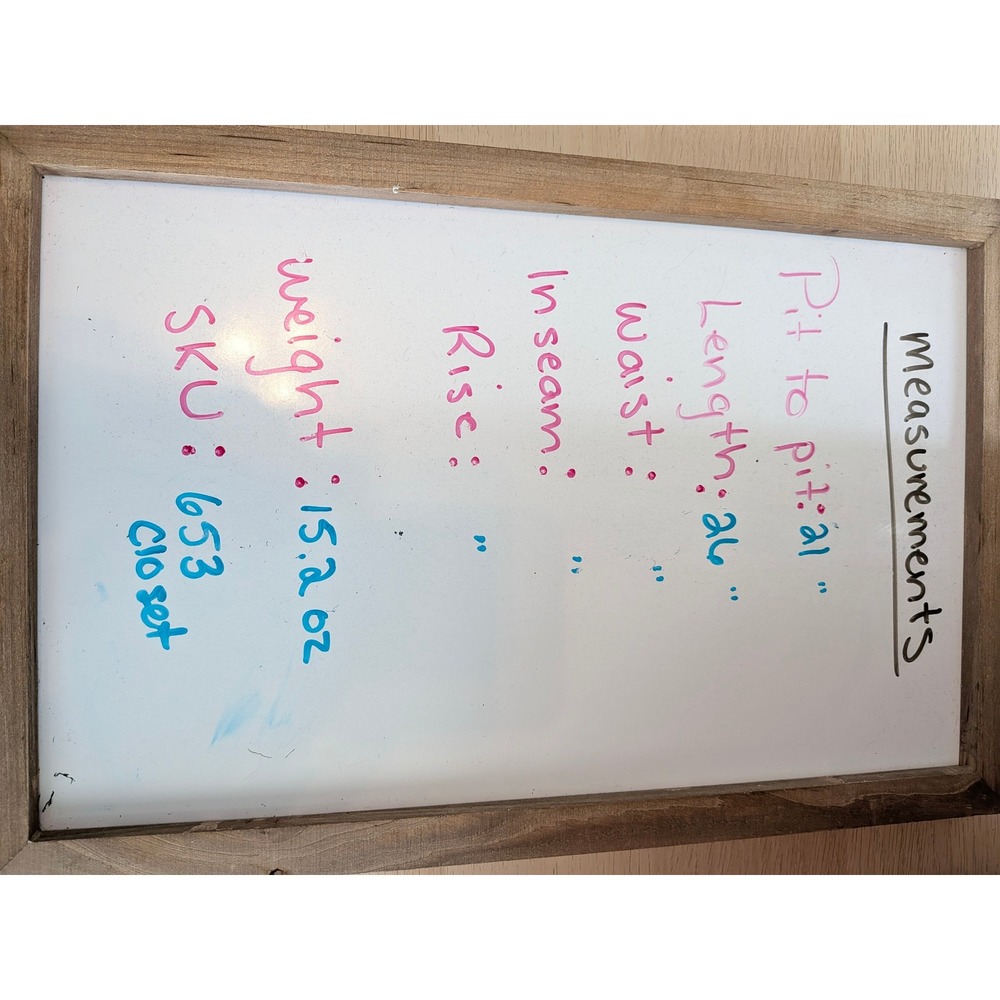 Measurements
Pit to pit: 21"
Length: 26"
Waist: "
Inseam: "
Rise: "
Weight: 15.2 oz
SKU: 653
Closet